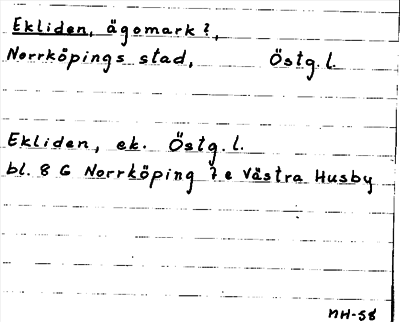 Ekliden, ägomark?,
Norrköpings stad, Östg.l.
Ekliden, ek. Östg.l.
bl. 8 G Norrköping 7 e Västra Husby
NH-58